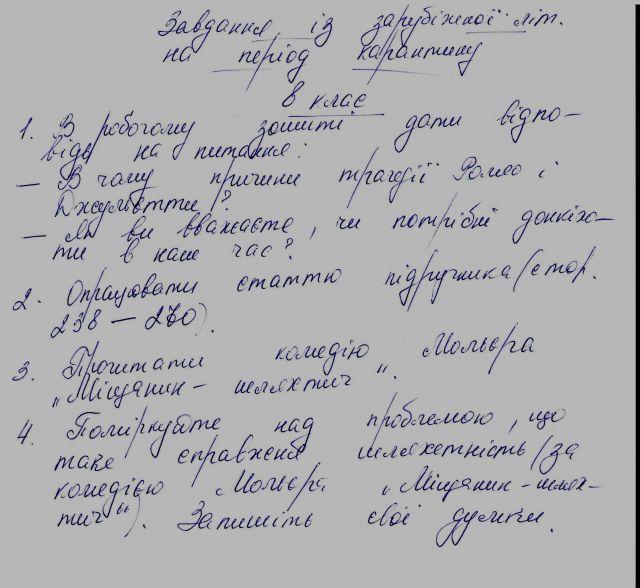 Завдання із зарубіжної літ.
на період карантину
8 клас
1. В робочому зошиті дати відпо-
віді на питання:
– В чому причини трагедії Ромео і
Джульєтти?
– Як ви вважаєте, чи потрібні донкіхо-
ти в наш час?
2. Опрацювати статтю підручника (стор.
238 – 240).
3. Прочитати комедію Мольєра
„Міщанин-шляхтич".
4. Поміркуйте над проблемою, що
таке справжня шляхетність (за
комедією Мольєра „Міщанин-шлях-
тич"). Запишіть свої думки.